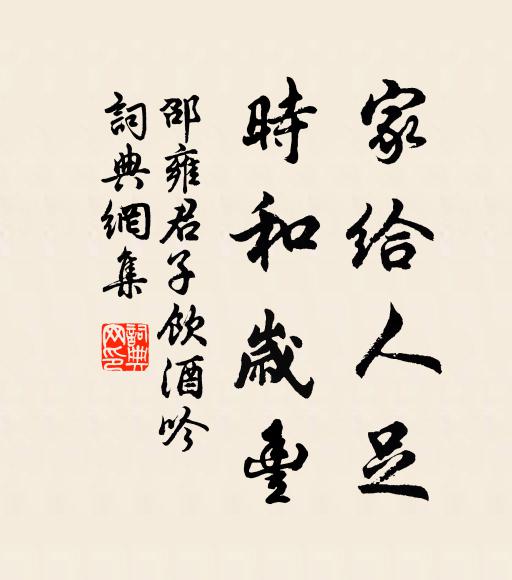 家給人足
時和歲豐
邵雍君子飲酒吟
詞典網集
詞典
网印